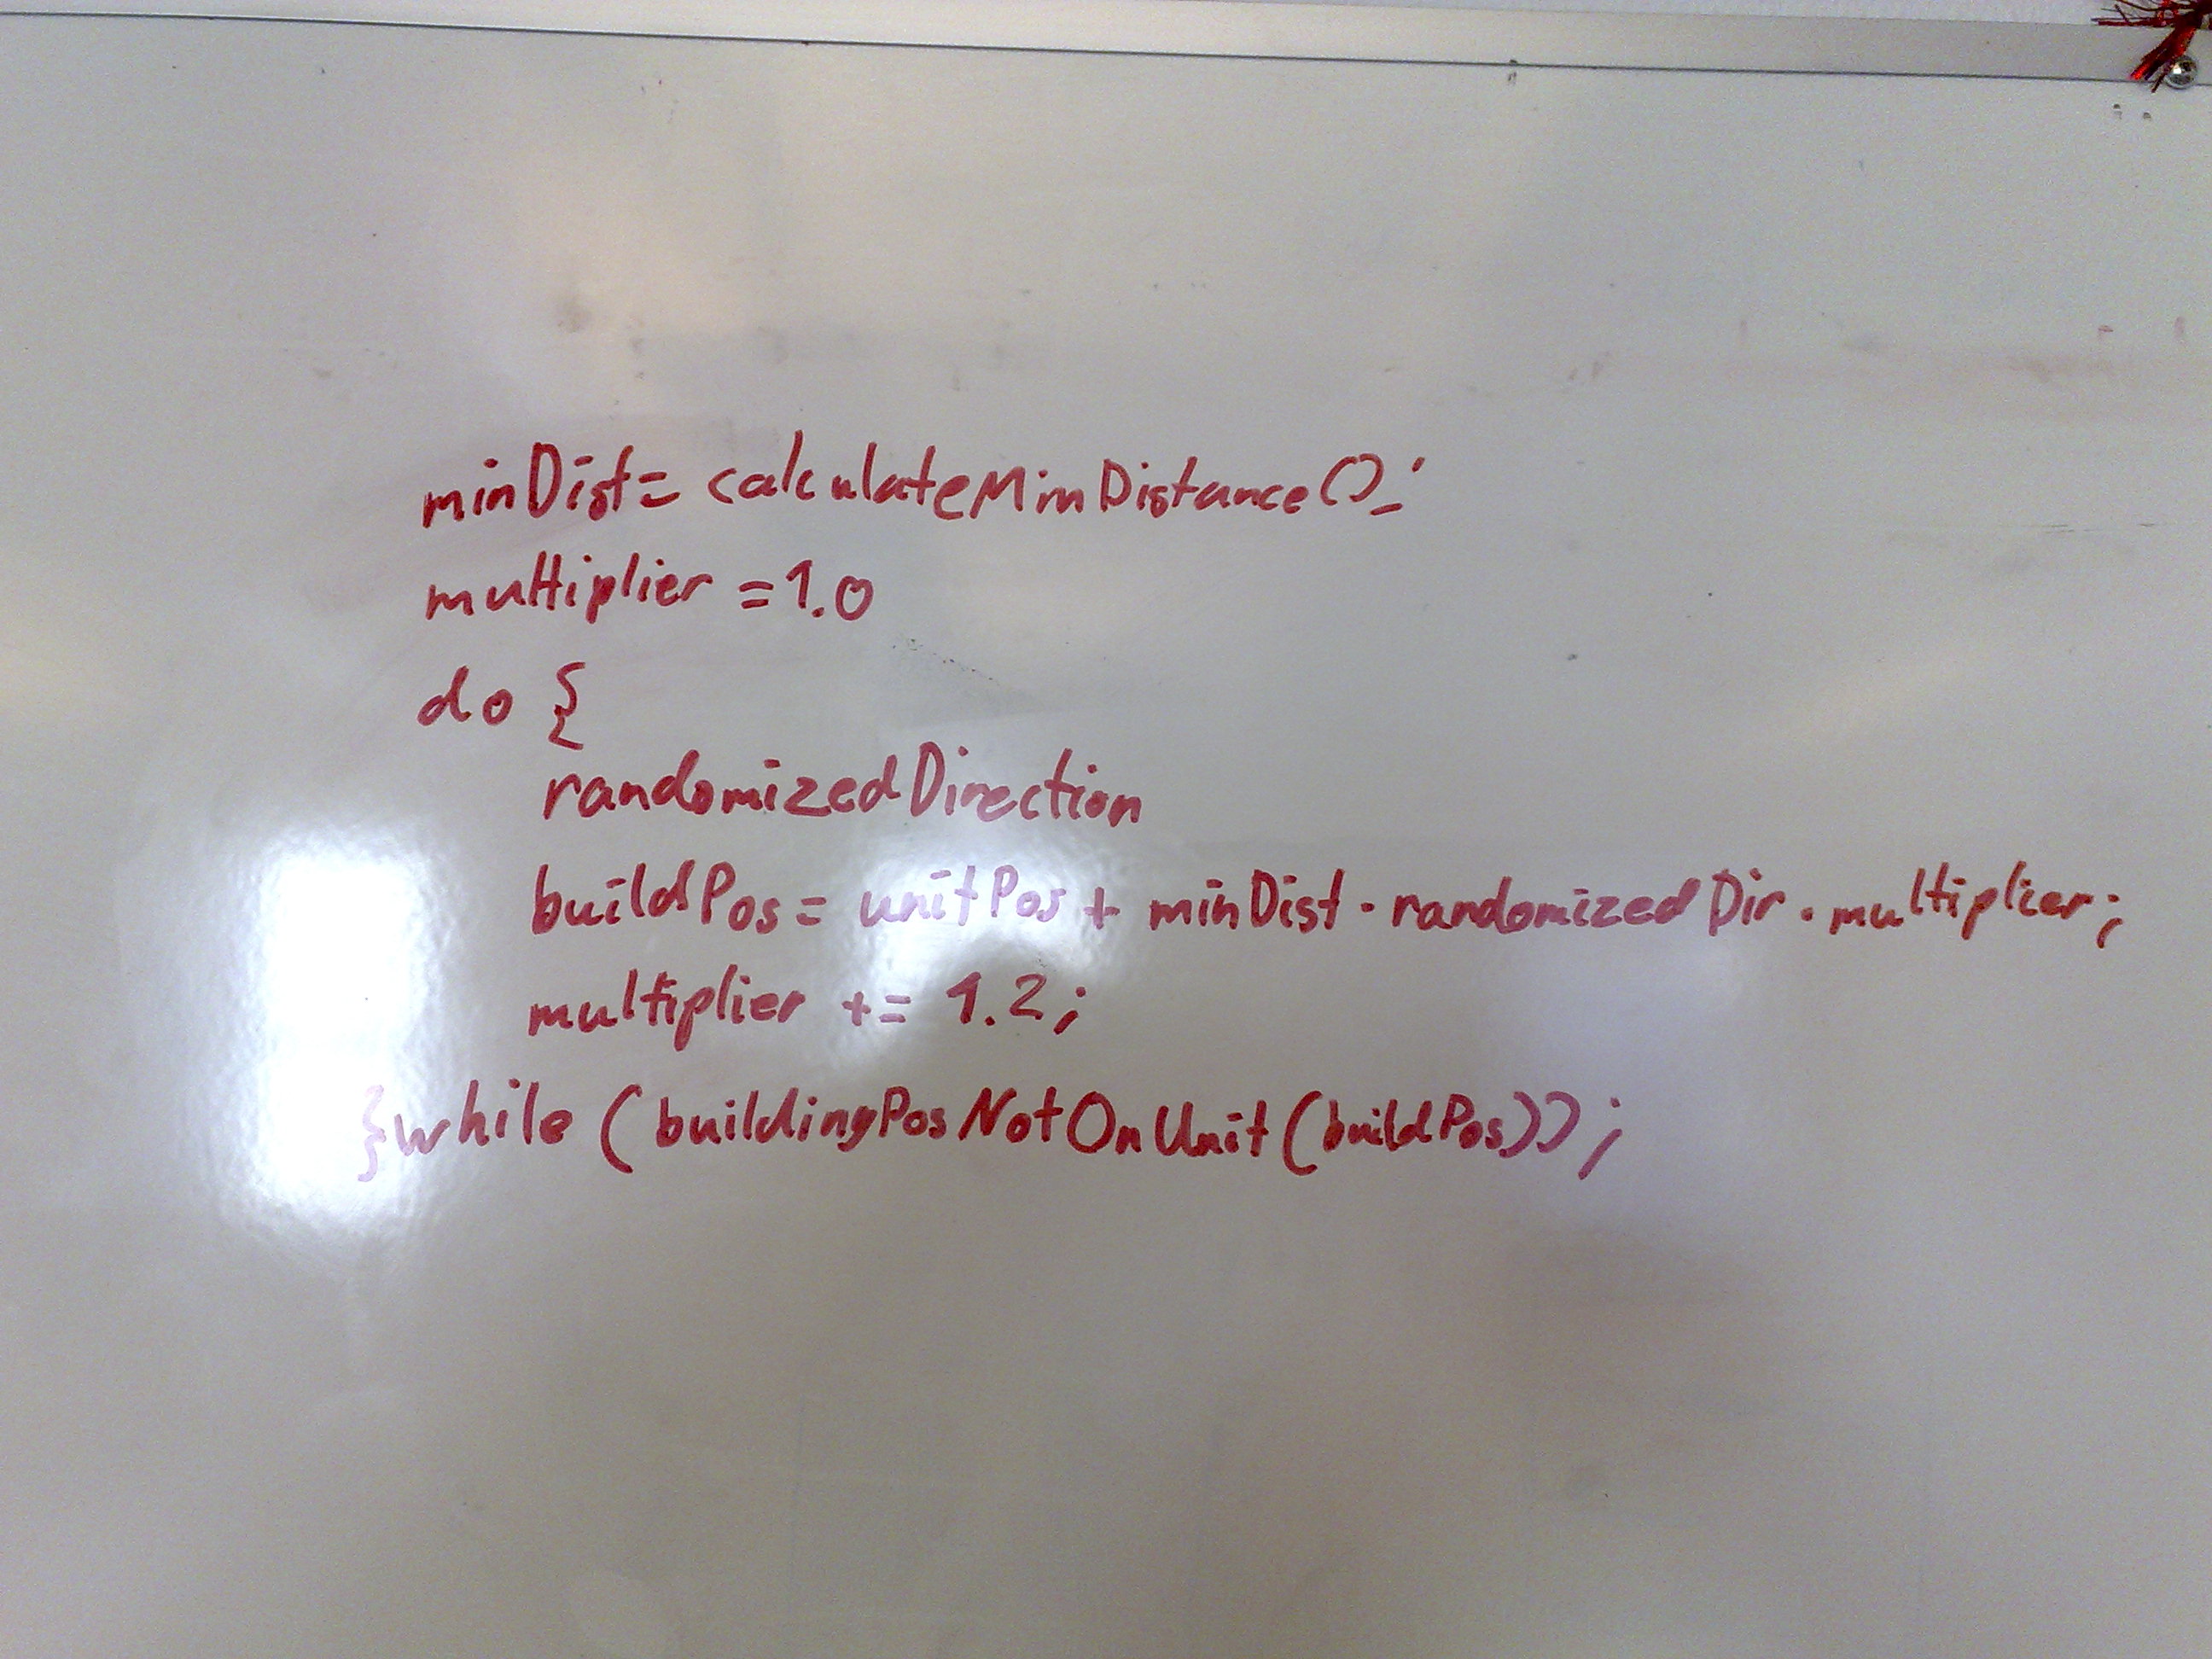 minDist= calculateMinDistance();
multiplier =1.0
do {
randomizedDirection
buildPos= unitPos + minDist · randomizedDir · multiplier;
multiplier += 1.2;
}while (buildingPosNotOnUnit(buildPos));